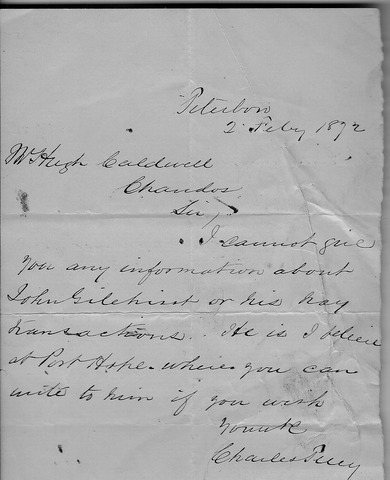 Peterboro
2 Feby 1872
Mr Hugh Caldwell
Chandos
Sir,
I cannot give
you any information about
John Gilchrist or his hay
transactions. He is I believe
at Port Hope - where you can
write to him if you wish
Charles Perry